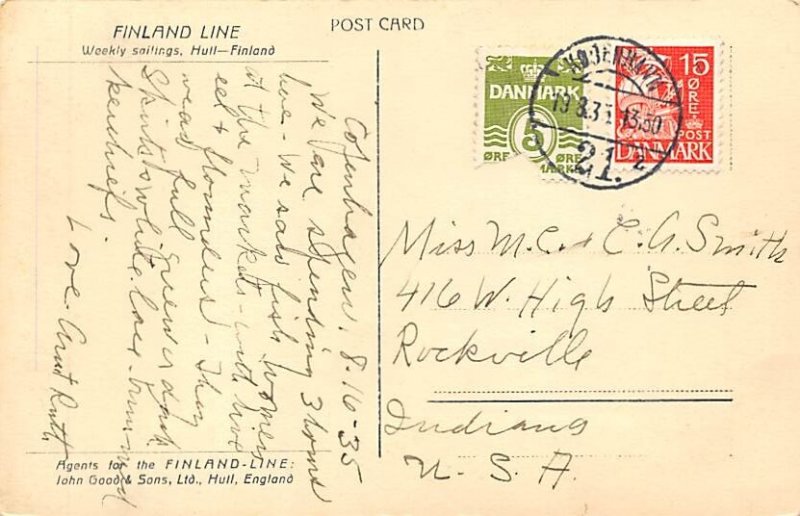 FINLAND LINE
Weekly sailings, Hull—Finland
POST CARD
Copenhagen. 8-16-35
We are spending 3 hours
here - We saw fish women
at the markets - with live
eel & flounders - They
wear full green & dark
skirts & white lace-trimmed
kerchiefs.
Love. Aunt Ruth
Agents for the FINLAND-LINE:
John Good & Sons, Ltd., Hull, England
DANMARK
5
ØRE ØRE
DANMARK
15
ØRE
POST
DANMARK
KØBENHAVN
19.8.35. 1350
21. 2
Miss M.C. & C.A. Smith
416 W. High Street
Rockville
Indiana
U. S. A.